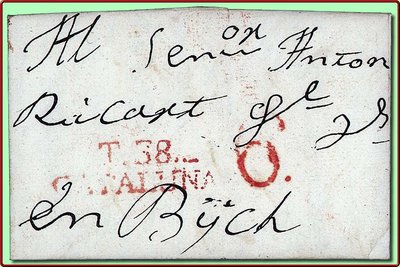 Al Senor Anton
Ricart
T.38.
CATALUÑA
6.
En Bÿch